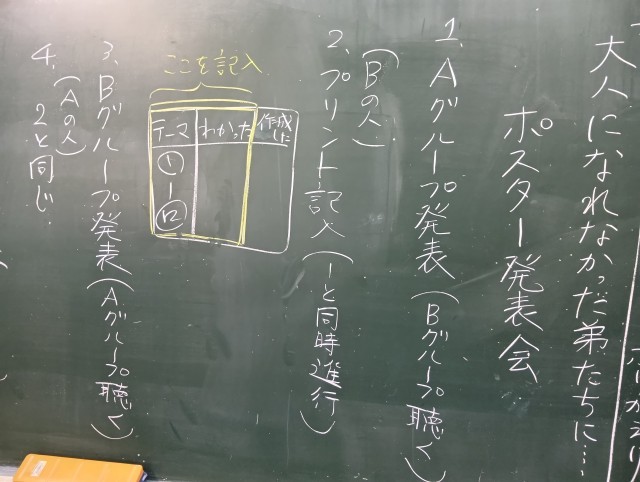 大人になれなかった弟たちに…
ポスター発表会
1. Aグループ発表(Bグループ聴く)
2. プリント記入(1と同時進行)
(Bの人)
ここを記入
テーマ わかった 作成した
①
|
⑫
3. Bグループ発表(Aグループ聴く)
4. 2と同じ
(Aの人)